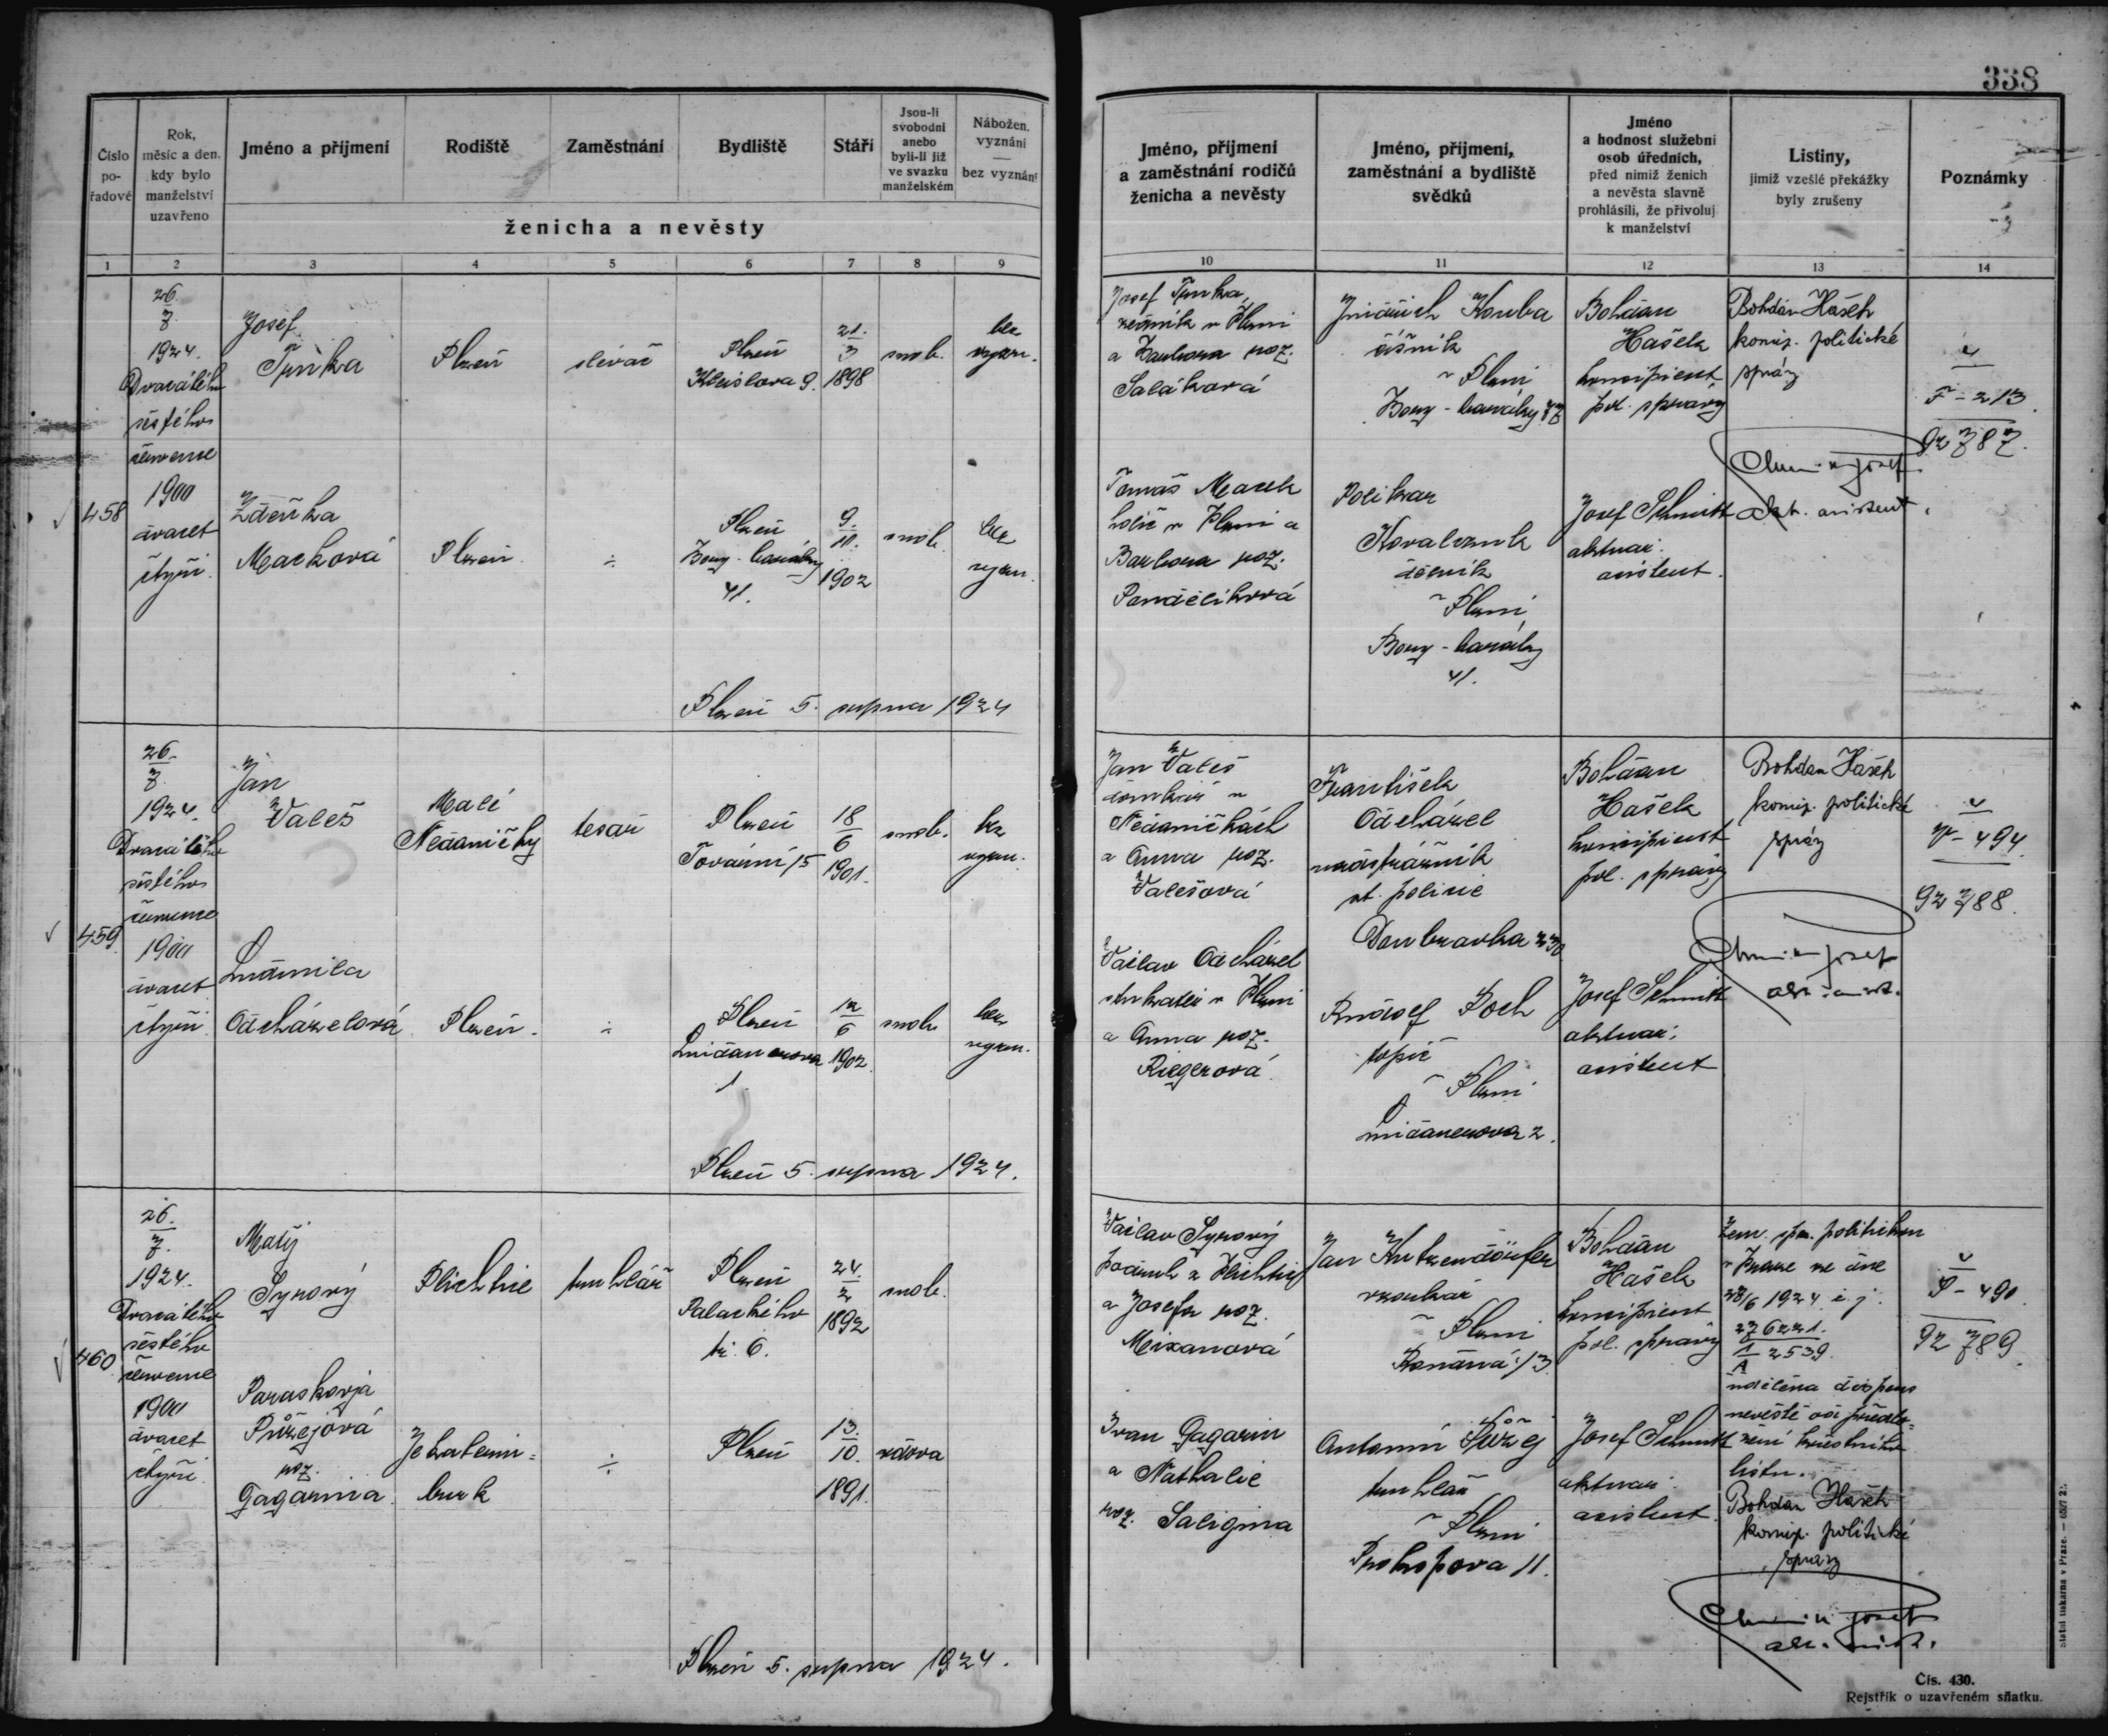 338
Číslo
po-
řadové
Rok,
měsíc a den,
kdy bylo
manželství
uzavřeno
Jméno a příjmení
Rodiště
Zaměstnání
Bydliště
Stáří
Jsou-li
svobodni
anebo
byli-li již
ve svazku
manželském
Nábožen.
vyznání
bez vyznání
ženicha a nevěsty
1 2 3 4 5 6 7 8 9
Jméno, příjmení
a zaměstnání rodičů
ženicha a nevěsty
Jméno, příjmení,
zaměstnání a bydliště
svědků
Jméno
a hodnost služební
osob úředních,
před nimiž ženich
a nevěsta slavně
prohlásili, že přivolují
k manželství
Listiny,
jimiž vzešlé překážky
byly zrušeny
Poznámky
10 11 12 13 14
458
26.
7.
1924.
Dvacátého
šestého
července
1900
dvacet
čtyři.
Josef
Plzeň
slévač
Plzeň
21.
3
1898
svob.
bez
vyzn.
Zdeňka
Macková
Plzeň
÷
Plzeň
41.
9.
11.
1902
svob.
bez
vyzn.
Plzeň 5. srpna 1924
Josef
v Plzni
a Barbora roz.
Saláková
Tomáš Macek
holič v Plzni a
Barbora roz.
Pandělíková
Jindřich Kouba
číšník
v Plzni
Polikar
Kovalczuk
dělník
v Plzni
41.
Bohdan
Hašek
koncipient
pol. správy
Josef Schmitt
aktuár.
asistent.
Bohdan Hašek
komis. politické
správy
Josef
akt. asistent.
F - 213
92787.
459
26.
7.
1924.
Dvacátého
šestého
července
1900
dvacet
čtyři.
Jan
Valeš
Malé
Nedaničky
tesař
Plzeň
Tovární 15
18
6
1901.
svob.
bez
vyzn.
Ludmila
Odcházelová
Plzeň.
÷
Plzeň
1
12
6
1902.
svob.
bez
vyzn.
Plzeň 5. srpna 1924.
Jan Valeš
domkář v
Nedaničkách
a Anna roz.
Valešová
Václav Odcházel
v Plzni
a Anna roz.
Riegerová.
František
Odcházel
nadstrážník
st. policie
Doubravka 230
Rudolf Poch
topič
v Plzni
2.
Bohdan
Hašek
koncipient
pol. správy
Josef Schmitt
aktuár.
asistent
Bohdan Hašek
komis. politické
správy
Josef
V - 494.
92788.
460
26.
7.
1924.
Dvacátého
šestého
července
1900
dvacet
čtyři.
Matěj
Syrový
Plichtice
truhlář
Plzeň
Palackého
tř. 6.
24.
2
1892
svob.
Paraskovja
Půžejová
roz.
Gagarina.
Jekaterin=
burk
÷
Plzeň
13.
10.
1891.
vdova
Plzeň 5. srpna 1924.
Václav Syrový
a Josefa roz.
Meixanová
Ivan Gagarin
a Nathalie
roz. Saligina
Jan
v Plzni
13.
Antonín Půžej
truhlář
v Plzni
Prokopova 11.
Bohdan
Hašek
koncipient
pol. správy
Josef Schmitt
aktuár.
asistent.
Zem. spr. politickou
v Praze ze dne
28/6 1924 č. j.
276221.
1 2539.
A
udělena dispens
nevěstě od předlo=
žení křestního
listu.
Bohdan Hašek
komis. politické
správy
Josef
S - 490.
92789.
Čís. 430.
Rejstřík o uzavřeném sňatku.
Státní tiskárna v Praze.